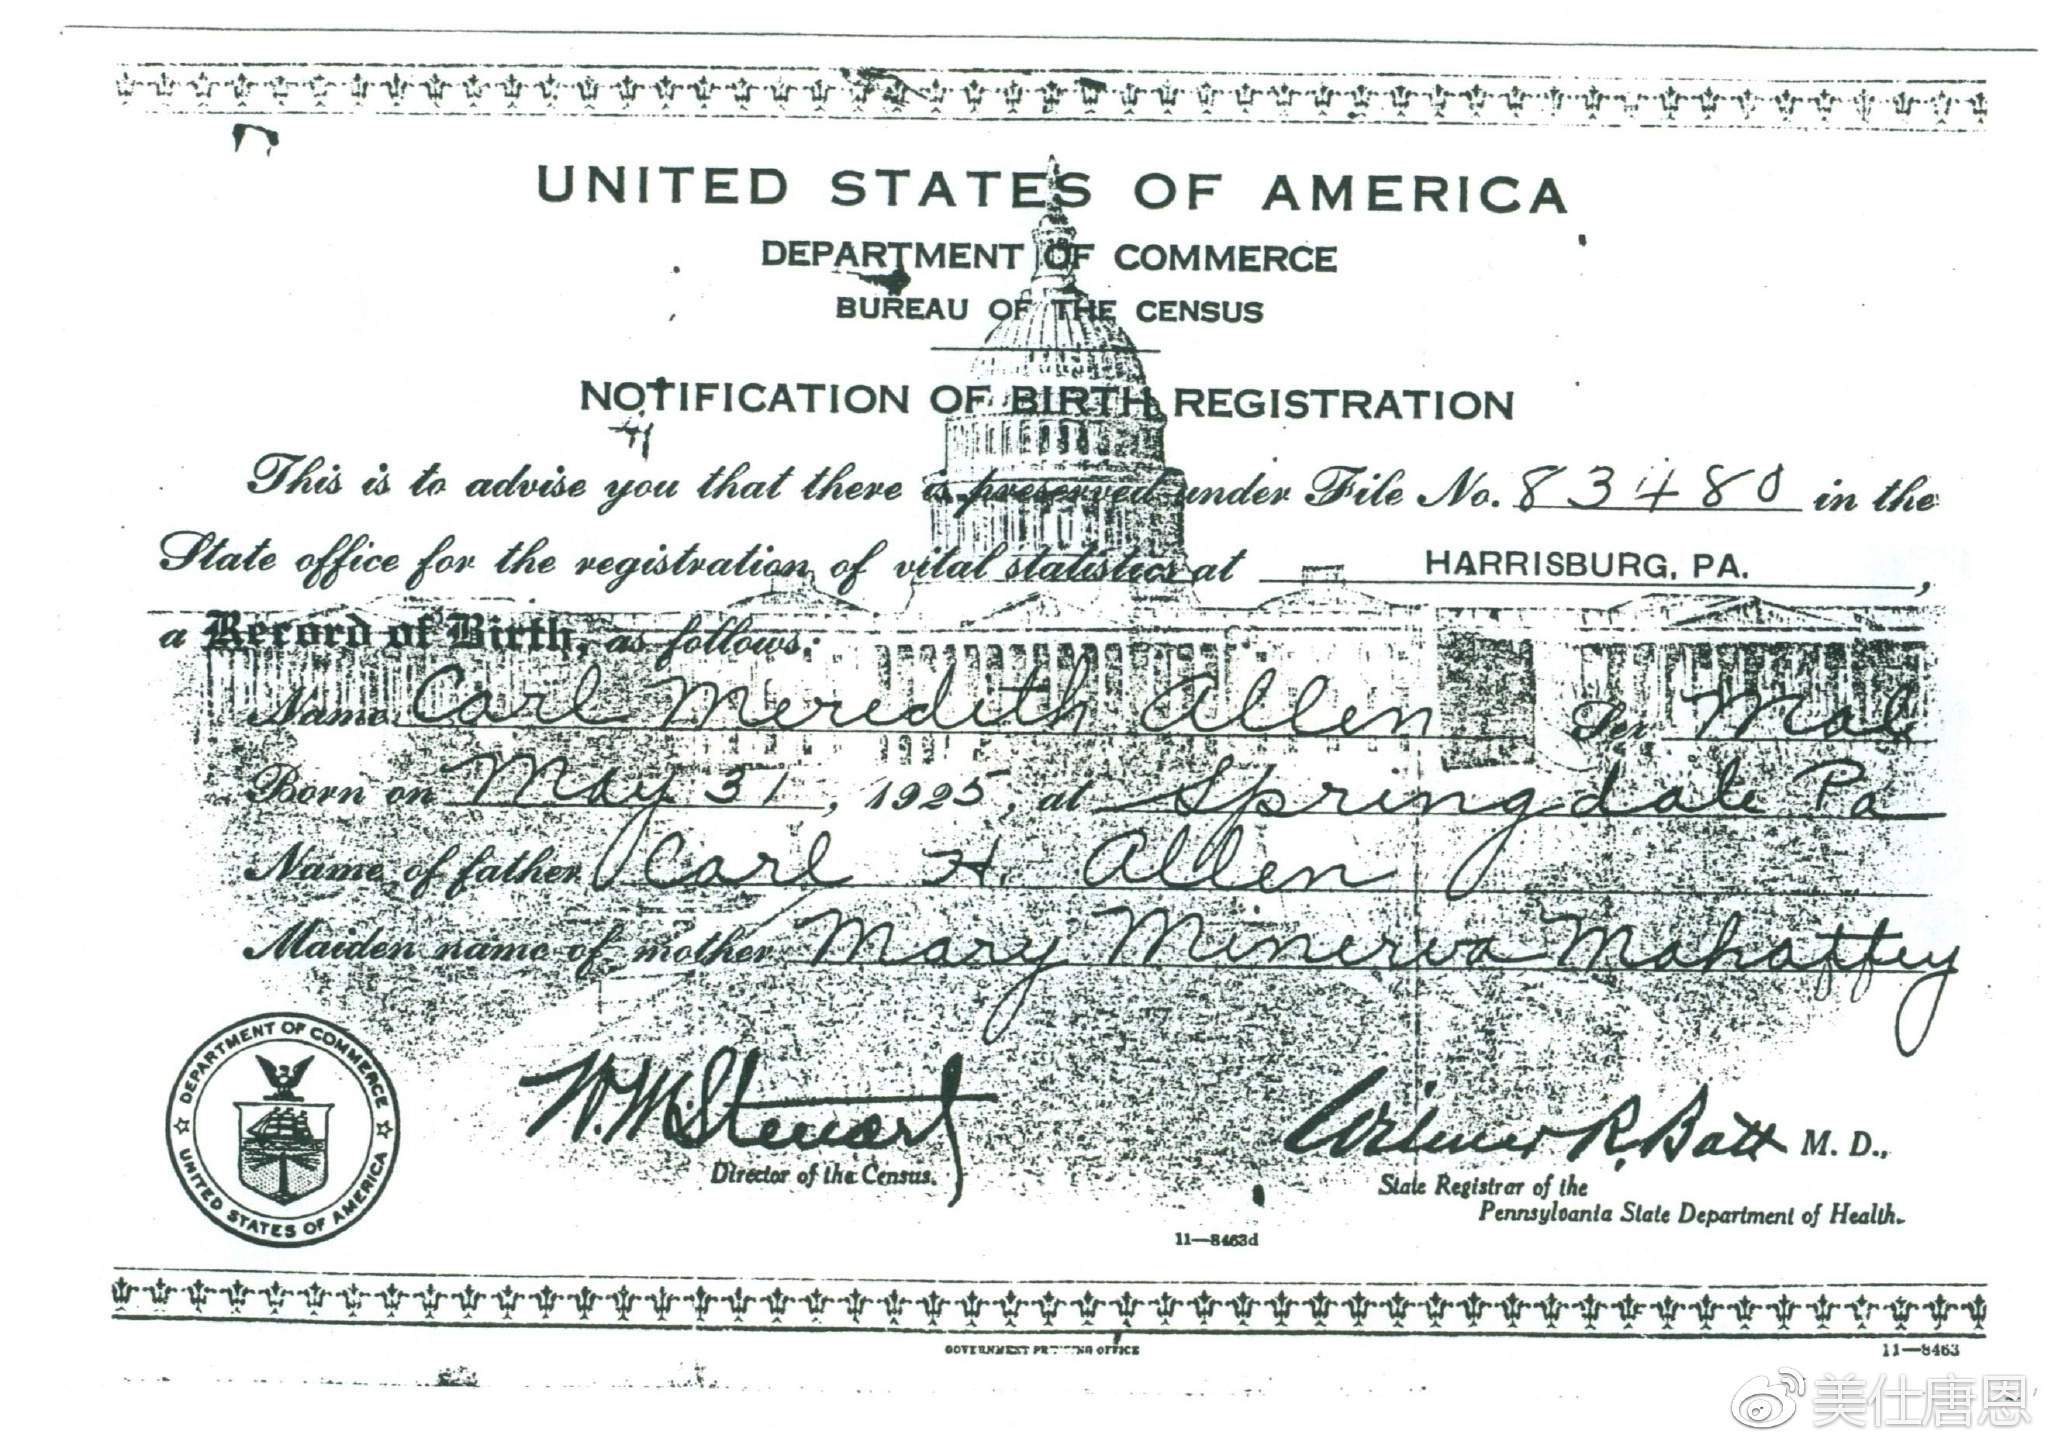 UNITED STATES OF AMERICA
DEPARTMENT OF COMMERCE
BUREAU OF THE CENSUS
NOTIFICATION OF BIRTH REGISTRATION
This is to advise you that there is preserved under File No. 83480 in the
State office for the registration of vital statistics at HARRISBURG, PA.,
a Record of Birth, as follows:
Name Carl Meredith Allen Sex Male
Born on May 31, 1925, at Springdale Pa
Name of father Carl H. Allen
Maiden name of mother Mary Minerva Mahaffey
DEPARTMENT OF COMMERCE
UNITED STATES OF AMERICA
W. M. Steuart
Director of the Census.
Wilmer R. Batt M. D.,
State Registrar of the
Pennsylvania State Department of Health.
11—8463d
GOVERNMENT PRINTING OFFICE
11—8463
美仕唐恩